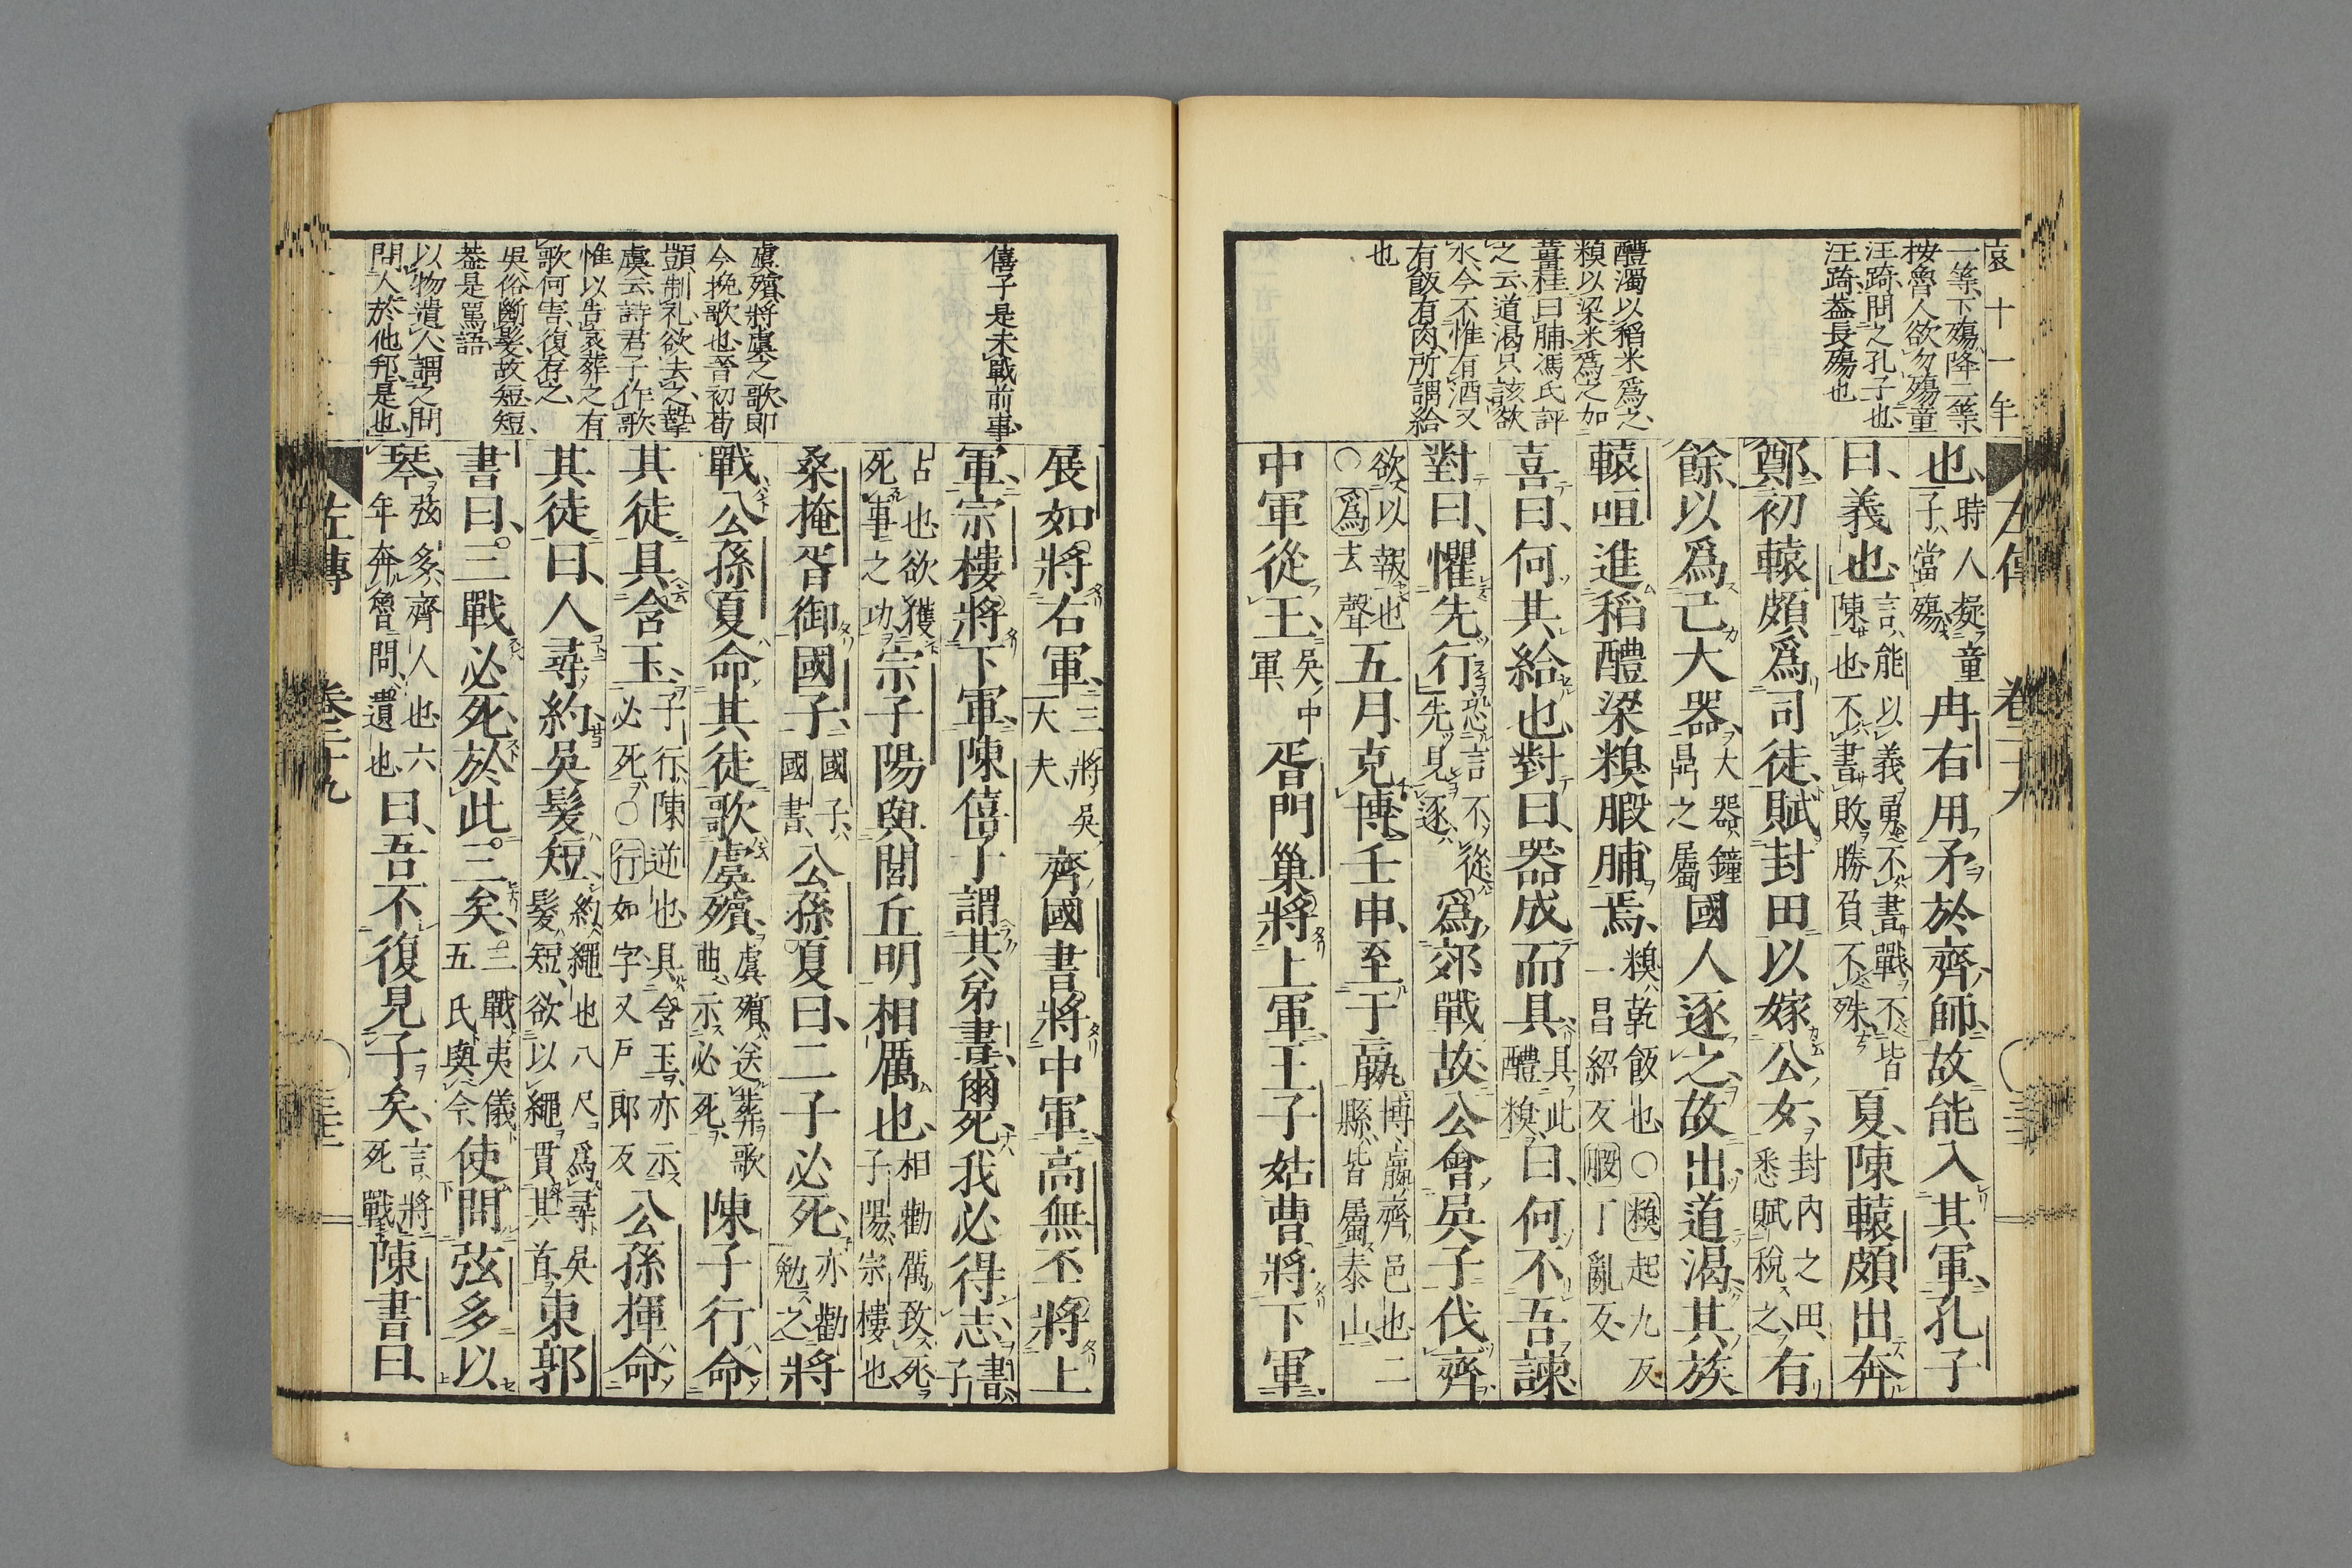 哀十一年
一等、下殤降二等、
按魯人欲勿殤童
汪踦、問之孔子也、
汪踦蓋長殤也
醴濁以稻米爲之、
糗以梁米爲之、加
薑桂曰脯、馮氏評
之云、道渴只該欲
水、今不惟有酒又
有飯有肉、所謂給
也
左傳 卷二十九
也、時人疑童子、當殤、冉右用矛於齊師、故能入其軍、孔子
曰、義也、言能以義勇、不書戰、不皆陳也、不書敗、勝負不殊、夏、陳轅頗出奔
鄭、初轅頗爲司徒、賦封田以嫁公女、封內之田、悉賦稅之、有
餘、以爲己大器、大器鐘鼎之屬國人逐之、故出、道渴、其族
轅咺進稻醴梁糗腶脯焉、糗乾飯也、○糗起九反一昌紹反腶丁亂反、
喜曰、何其給也、對曰、器成而具、具此醴糗、曰、何不吾諫、
對曰、懼先行、恐言不從、先見逐、爲郊戰故、公會吳子伐齊、
欲以報也○爲去聲五月、克博、壬申、至于嬴、博嬴齊邑也、二縣皆屬泰山、
中軍從王、吳中軍、胥門巢將上軍、王子姑曹將下軍、
展如將右軍、三將吳大夫、齊國書將中軍、高無㔻將上
軍、宗樓將下軍、陳僖子謂其弟書、爾死、我必得志、書、子
占也、欲獲死事之功、宗子陽與閭丘明相厲也、相勸厲致死、子陽宗樓也、
桑掩胥御國子、國子國書、公孫夏曰、二子必死、亦勸勉之、將
戰、公孫夏命其徒歌虞殯、虞殯送葬歌曲、示必死、陳子行命
其徒具含玉、子行陳逆也、具含玉、亦示必死、○行如字又戶郎反公孫揮命
其徒曰、人尋約、吳髮短、約繩也、八尺爲尋、吳髮短、欲以繩貫其首、東郭
書曰、三戰必死、於此三矣、三戰、夷儀五氏與今、使問弦多以
琴、弦多齊人也、六年奔魯、問遺也、曰、吾不復見子矣、言將死戰、陳書曰、
僖子是未戰前事、
虞殯將虞之歌、即
今挽歌也、晉初荀
顗制礼、欲去之、摯
虞云、詩君子作歌、
惟以告哀、葬之有
歌何害、復存之、
吳俗斷髮、故短、短、
蓋是罵語、
以物遺人謂之問
問人於他邦是也、
左傳 卷二十九